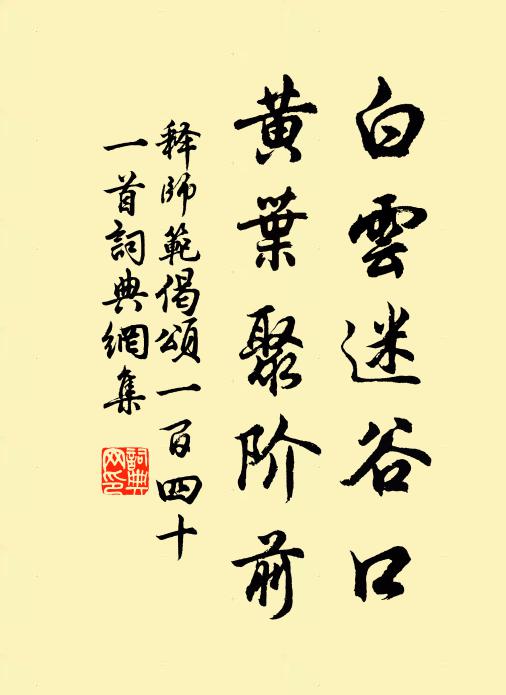 白雲迷谷口
黄葉聚阶前
释師範偈頌一百四十
一首詞典網集
詞典
网印